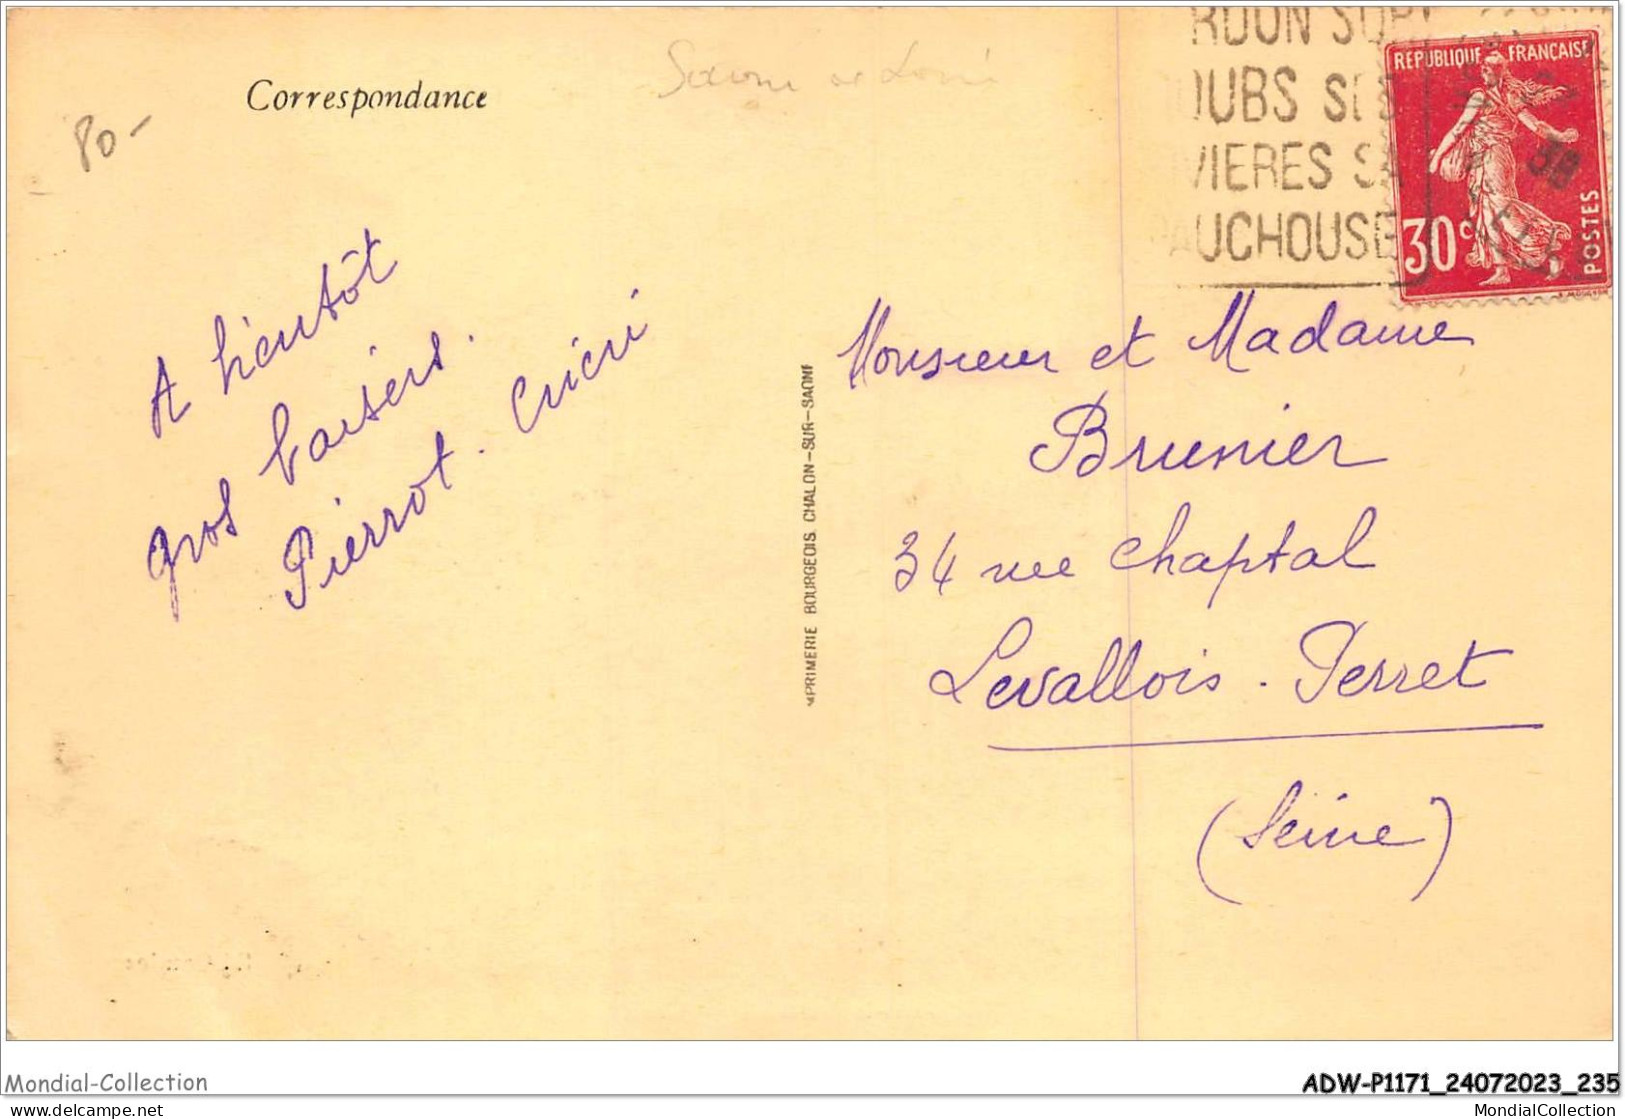 Correspondance
80-
A bientôt
gros baisers.
Pierrot. Cricri
IMPRIMERIE BOURGEOIS CHALON-SUR-SAONE
RDON SUR
OUBS SES
VIERES SA
AUCHOUSE
REPUBLIQUE FRANÇAISE
30c
POSTES
38
Monsieur et Madame
Brunier
34 rue Chaptal
Levallois-Perret
(Seine)
Mondial-Collection
ADW-P1171_24072023_235
https://www.delcampe.net
MondialCollection